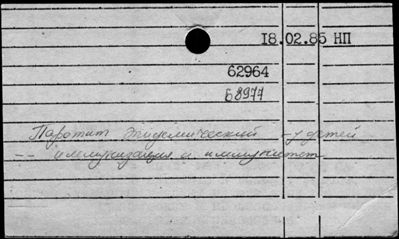 18.02.85 НП
62964
Б8977
Паротит эпидемический - у детей
-- иммунизация и иммунитет